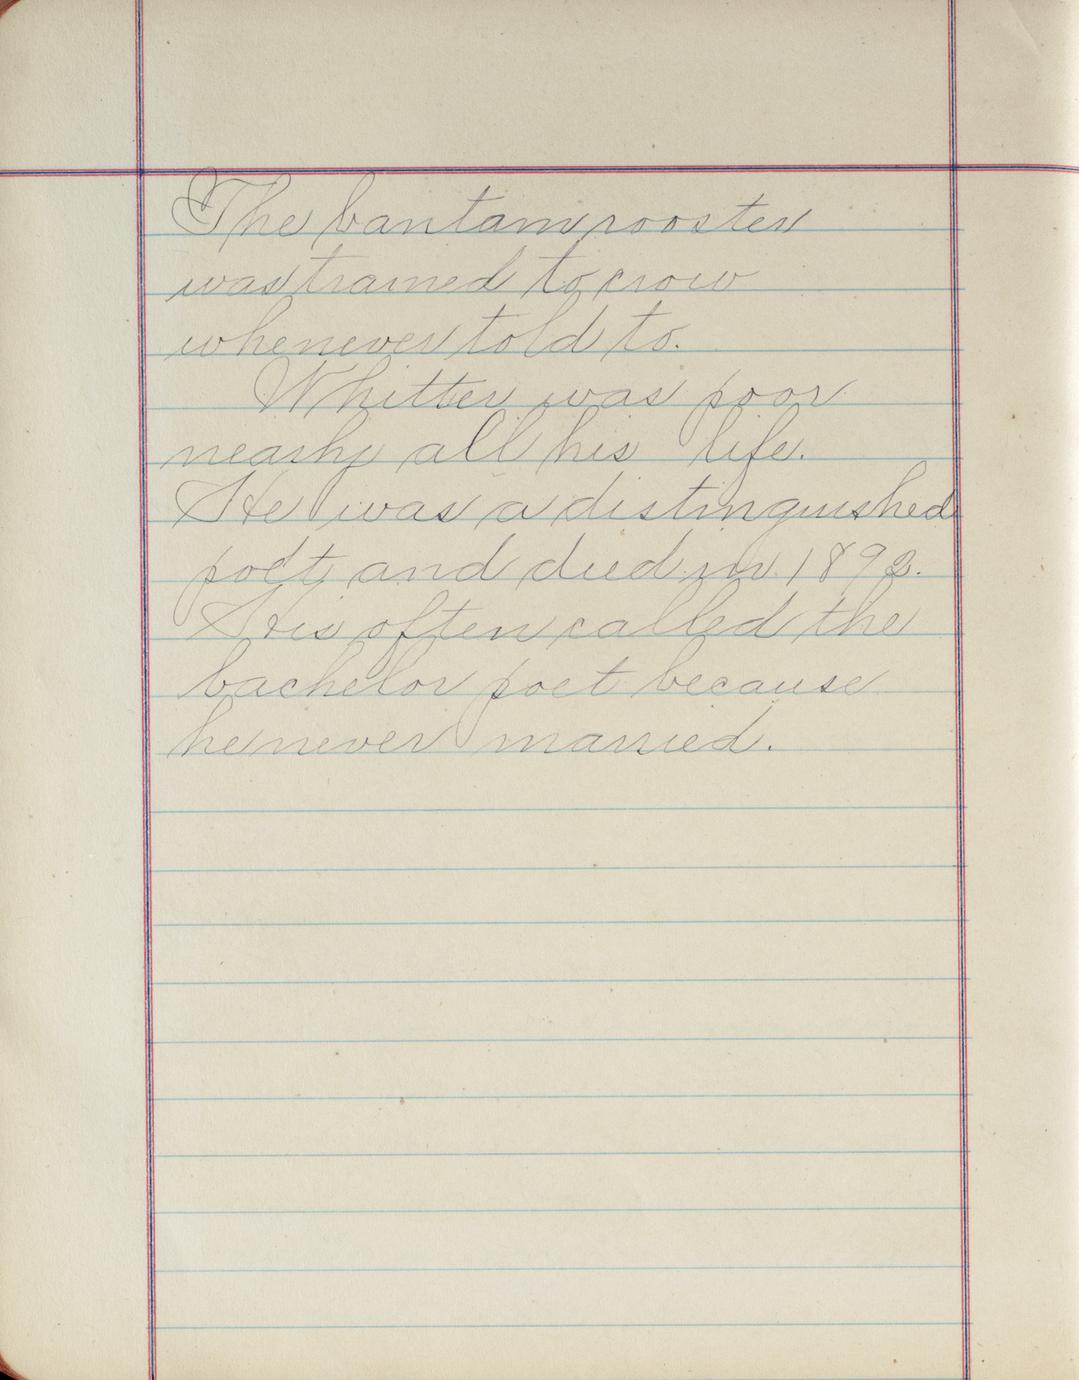 The bantam rooster
was trained to crow
whenever told to.
Whitter was poor
nearly all his life.
He was a distinguished
poet and died in 1892.
His often called the
bachelor poet because
he never married.